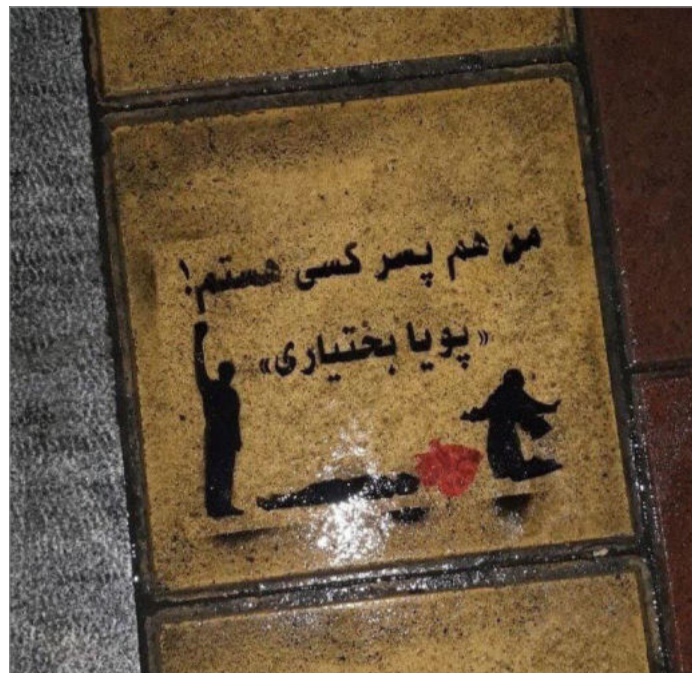 من هم پسر کسی هستم!
«پویا بختیاری»